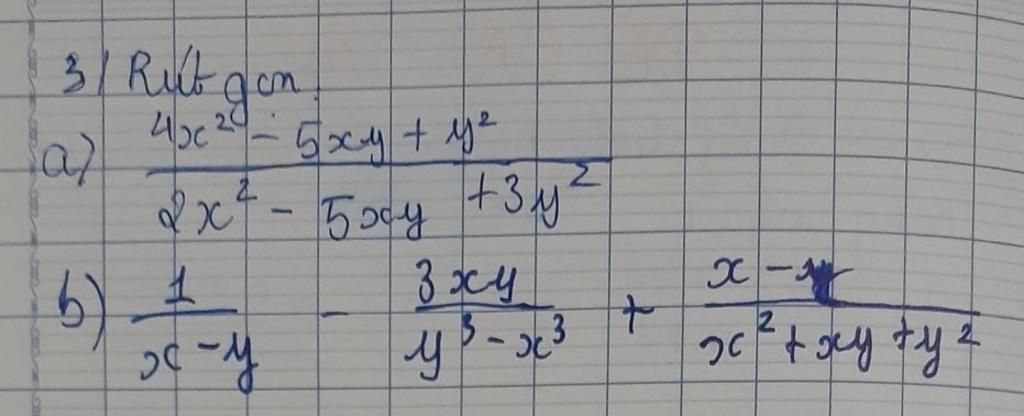 3/ Rút gọn.
a) \frac{4x² - 5xy + y²}{2x² - 5xy + 3y²}
b) \frac{1}{x - y} - \frac{3xy}{y³ - x³} + \frac{x - y}{x² + xy + y²}